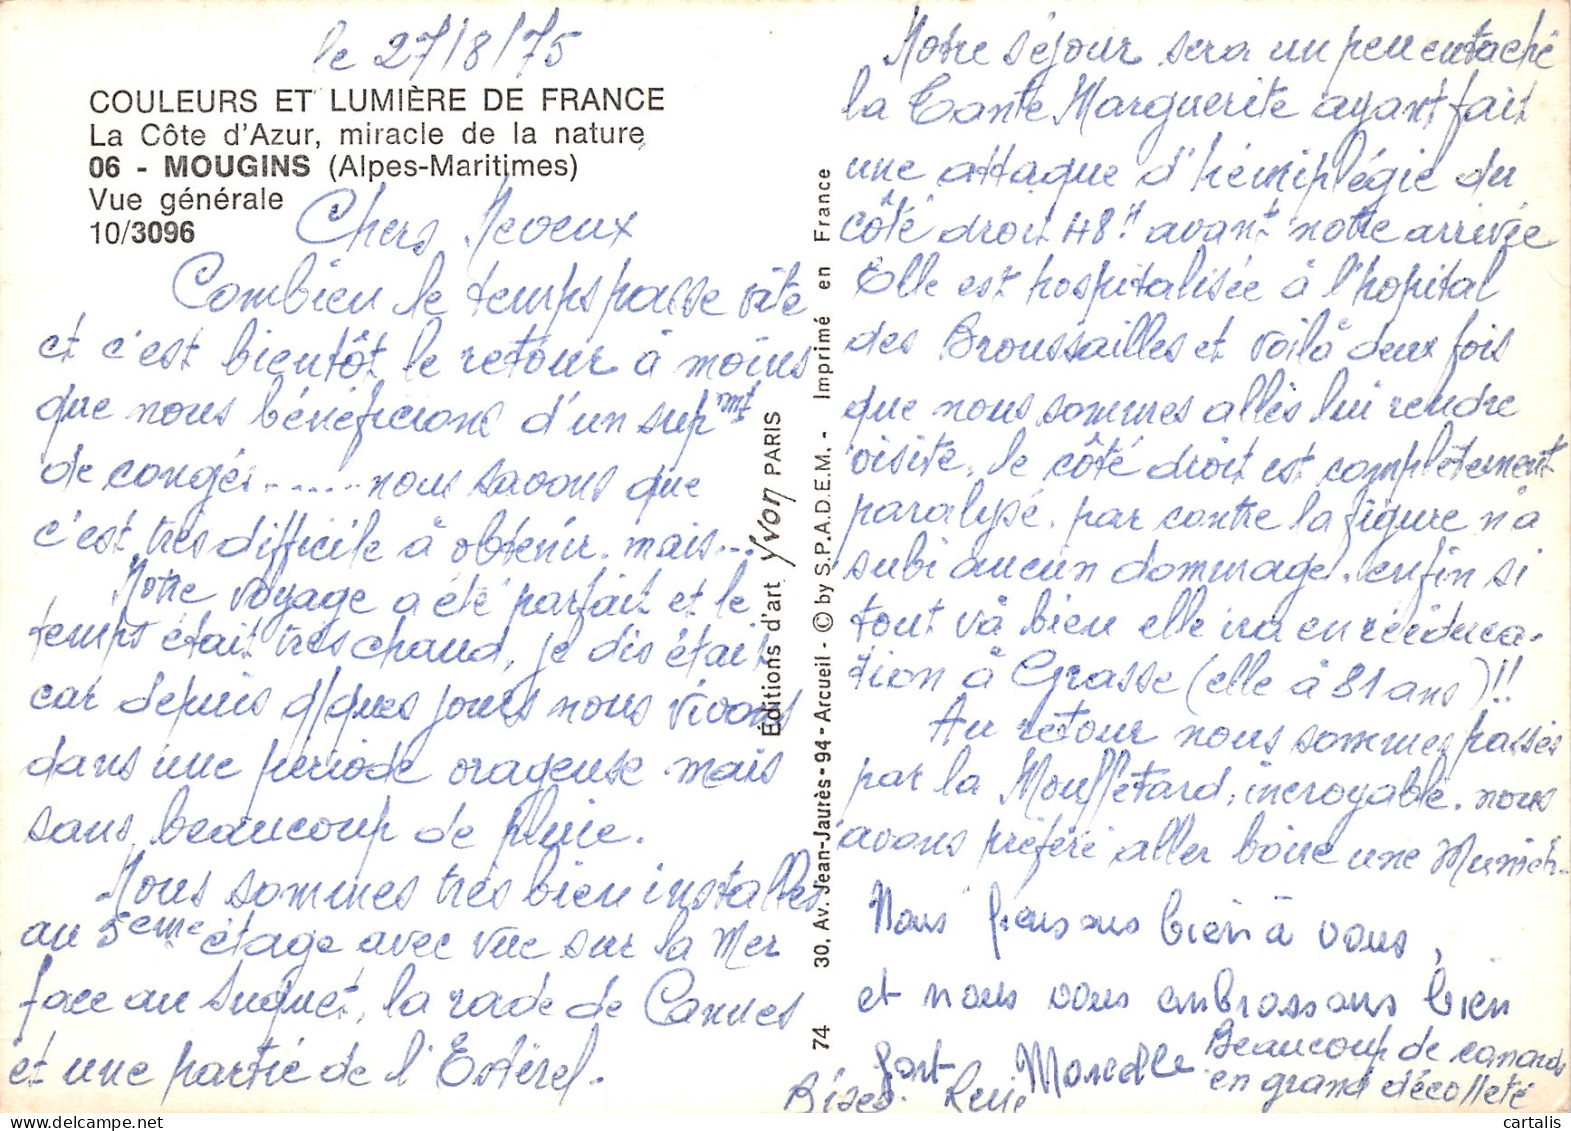 le 27/8/75
COULEURS ET LUMIÈRE DE FRANCE
La Côte d'Azur, miracle de la nature
06 - MOUGINS (Alpes-Maritimes)
Vue générale
10/3096
Chers Neveux
Combien le temps passe vite
et c'est bientôt le retour à moins
que nous bénéficions d'un sup mt
de congés ....... nous savons que
c'est très difficile à obtenir. mais...
Notre voyage a été parfait et le
temps était très chaud, je dis était
car depuis q/ques jours nous vivons
dans une période orageuse mais
sans beaucoup de pluie.
Nous sommes très bien installés
au 5eme étage avec vue sur la Mer
face au Suquet, la rade de Cannes
et une partie de l'Estérel.
Éditions d'art Yvon PARIS
74 30, Av. Jean-Jaurès - 94 - Arcueil - © by S.P.A.D.E.M. - Imprimé en France
Notre séjour sera un peu entaché
la Tante Marguerite ayant fait
une attaque d'hémiplégie du
côté droit 48H avant notre arrivée
Elle est hospitalisée à l'hopital
des Broussailles et voilà deux fois
que nous sommes allés lui rendre
visite. le côté droit est complètement
paralysé. par contre la figure n'a
subi aucun dommage. enfin si
tout và bien elle ira en rééduca-
tion à Grasse (elle à 81 ans)!!
Au retour nous sommes passés
par la Mouffetard, incroyable. nous
avons préféré aller boire une Munich.
Nous pensons bien à vous,
et nous vous embrassons bien
fort Marcelle
Beaucoup de canards
en grand décolleté
Bises. René